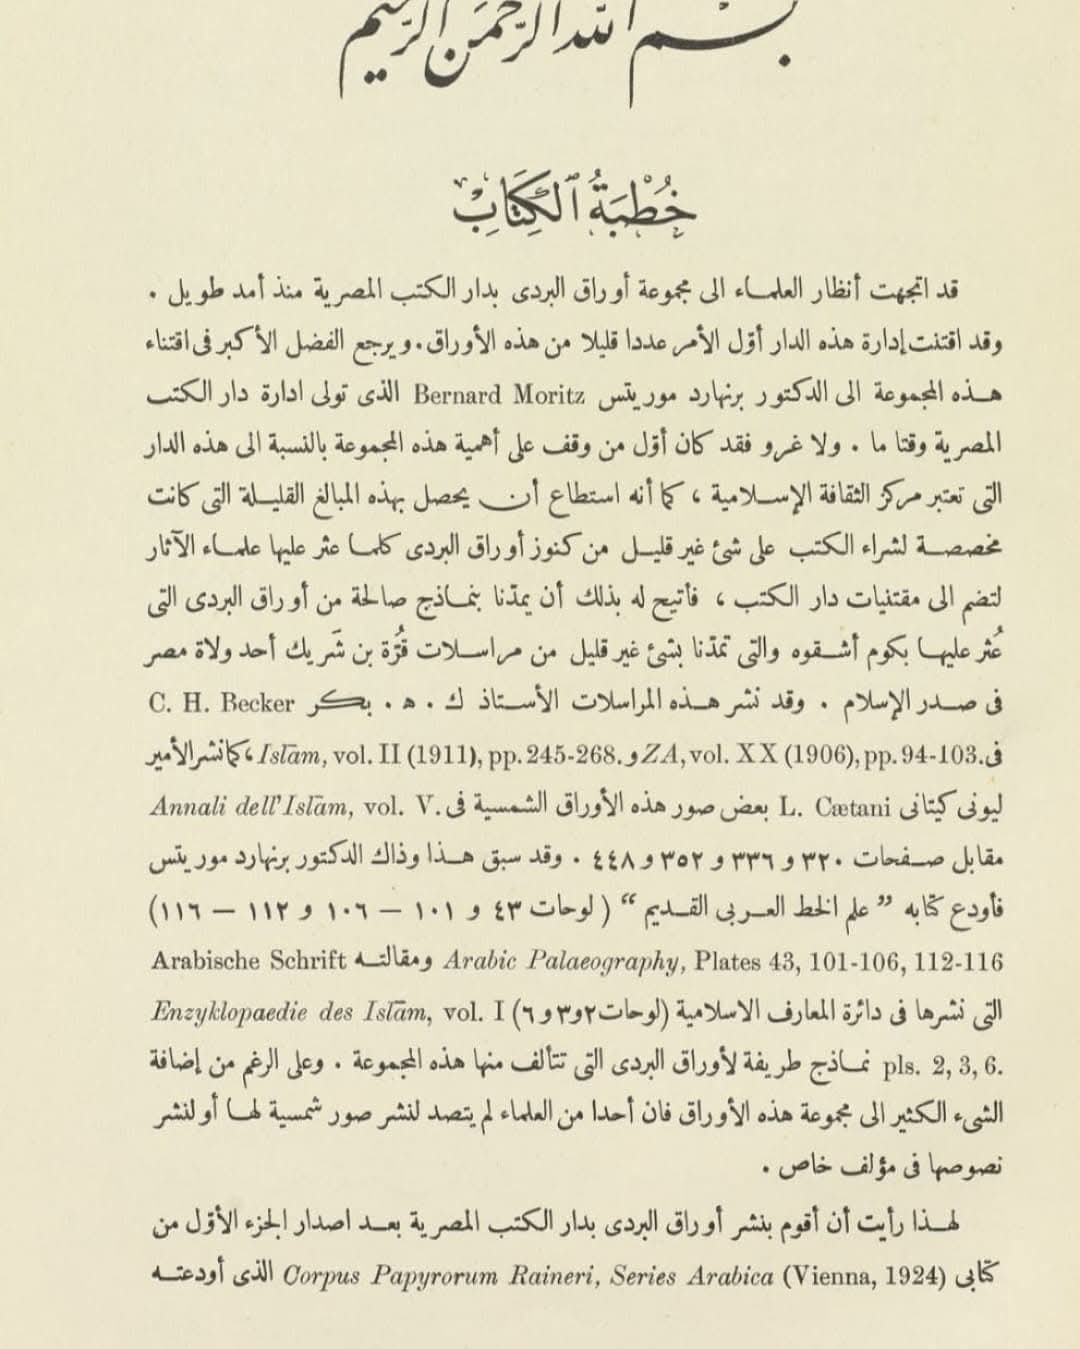 بسم الله الرحمن الرحيم
خُطْبَةُ ٱلْكِتَابِ
قد اتجهت أنظار العلماء الى مجموعة أوراق البردى بدار الكتب المصرية منذ أمد طويل .
وقد اقتنت إدارة هذه الدار أوّل الأمر عددا قليلا من هذه الأوراق . ويرجع الفضل الأكبر فى اقتناء
هذه المجموعة الى الدكتور برنهارد موريتس Bernard Moritz الذى تولى ادارة دار الكتب
المصرية وقتا ما . ولا غرو فقد كان أوّل من وقف على أهمية هذه المجموعة بالنسبة الى هذه الدار
التى تعتبر مركز الثقافة الإسلامية ، كما أنه استطاع أن يحصل بهذه المبالغ القليلة التى كانت
مخصصة لشراء الكتب على شئ غير قليل من كنوز أوراق البردى كلما عثر عليها علماء الآثار
لتضم الى مقتنيات دار الكتب ، فأتيح له بذلك أن يمدّنا بنماذج صالحة من أوراق البردى التى
عُثر عليها بكوم أشقوه والتى تمدّنا بشئ غير قليل من مراسلات قُرَّة بن شَريك أحد ولاة مصر
فى صدر الإسلام . وقد نشر هذه المراسلات الأستاذ ك . ه . بكر C. H. Becker
فى .ZA, vol. XX (1906), pp. 94-103 و .Islām, vol. II (1911), pp. 245-268 ، كما نشر الأمير
ليونى كيتانى L. Cætani بعض صور هذه الأوراق الشمسية فى .Annali dell' Islām, vol. V
مقابل صفحات ٣٢٠ و ٣٣٦ و ٣٥٢ و ٤٤٨ . وقد سبق هذا وذاك الدكتور برنهارد موريتس
فأودع كتابه ” علم الخط العربى القديم “ ( لوحات ٤٣ و ١٠١ — ١٠٦ و ١١٢ — ١١٦ )
Arabic Palaeography, Plates 43, 101-106, 112-116 ومقالته Arabische Schrift
التى نشرها فى دائرة المعارف الاسلامية (لوحات ٢ و ٣ و ٦) Enzyklopaedie des Islām, vol. I
pls. 2, 3, 6. نماذج طريفة لأوراق البردى التى تتألف منها هذه المجموعة . وعلى الرغم من إضافة
الشىء الكثير الى مجموعة هذه الأوراق فان أحدا من العلماء لم يتصد لنشر صور شمسية لها أو لنشر
نصوصها فى مؤلف خاص .
لهذا رأيت أن أقوم بنشر أوراق البردى بدار الكتب المصرية بعد اصدار الجزء الأوّل من
كتابى Corpus Papyrorum Raineri, Series Arabica (Vienna, 1924) الذى أودعته